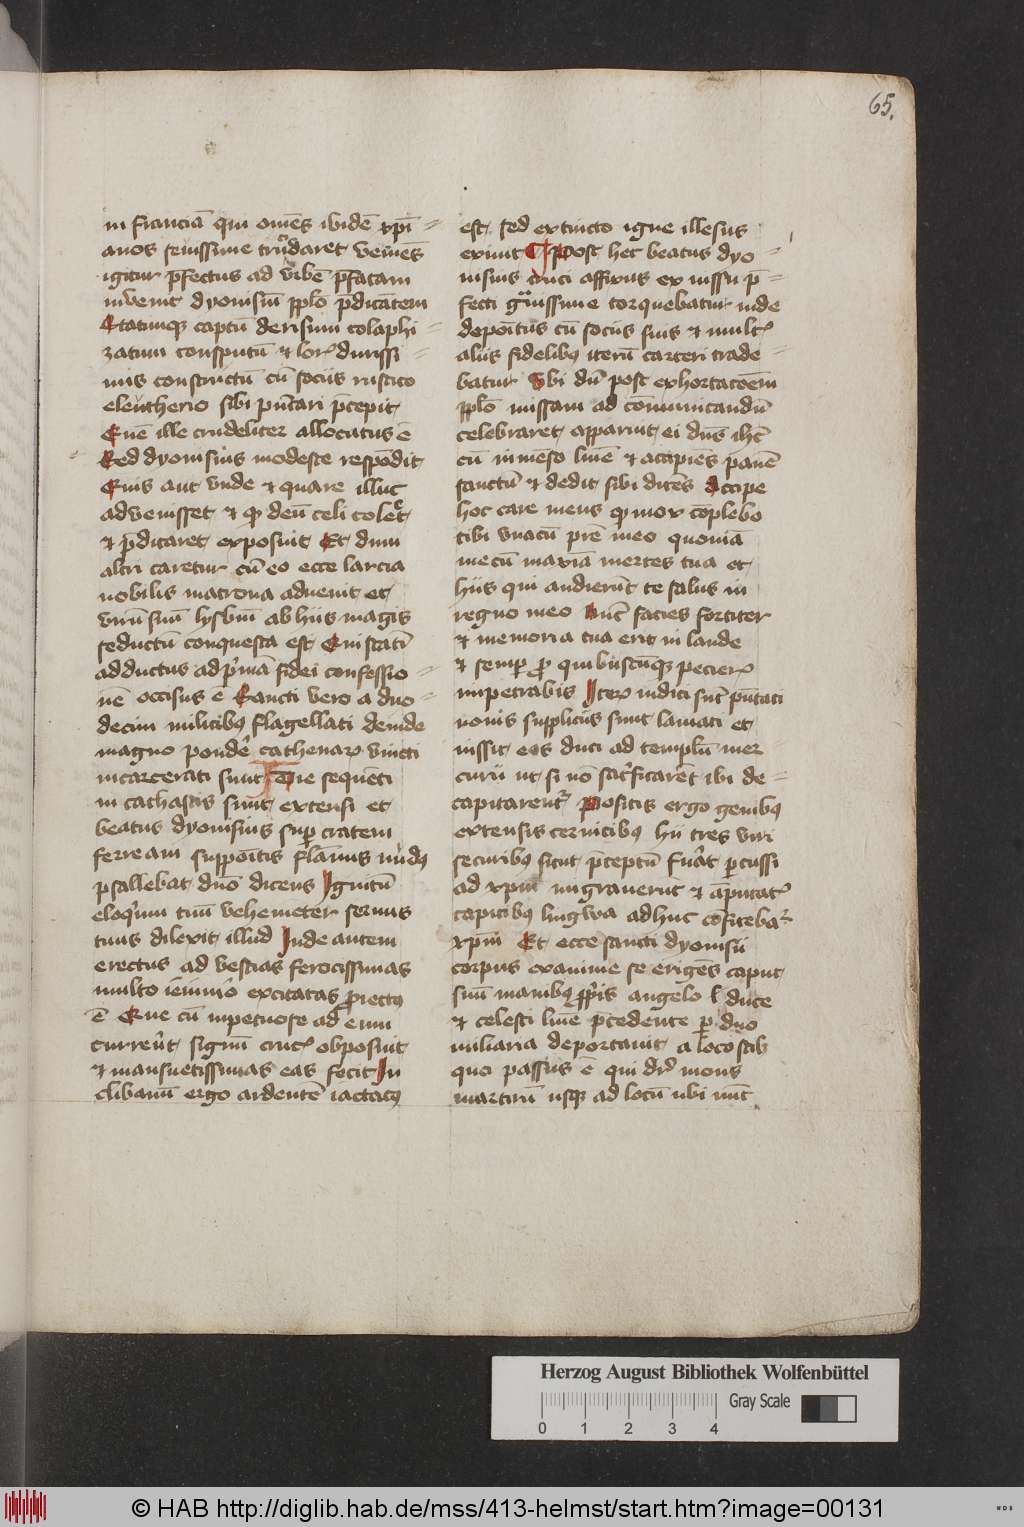 65.
in franciā qui om̄es ibidē xpī
anos seuissime trūdaret veniēs
igitur p̄fectus ad vrbē p̄fatam
inuenit dyonisiū pplō p̄dicātem
Statimq captū derisum colaphi
zatum consputū et lor durissi
mis constrictū cū sociis rustico
eleutherio sibi pn̄tari p̄cepit
Quē ille crudeliter allocutus ē
Sed dyonisius modeste respōdit
Quis aut vnde et quare illuc
advenisset et q deū celi coleret
et p̄dicaret exposuit Et dum
altri caretur cū eo ecce larcia
nobilis matrona aduenit et
virū suū lysbiū ab hiis magis
seductū conquesta est Qui statī
adductus ad p̄imā fidei confessio
nē occisus ē Sancti vero a duo
decim militibꝯ flagellati deinde
magno pondē cathenarꝝ vincti
incarcerati sunt Die sequēti
in cathastis sunt extensi et
beatus dyonisius sup cratem
ferream suppoītis flāmis nudꝯ
psallebat dn̄o dicens Ignitū
eloquium tuū vehemēter seruus
tuus dilexit illud Inde autem
erectus ad bestias ferocissimas
multo ieiunio excitatas proiectꝯ
ē Que cū inpetuose ad eum
currerūt signū cruc obposuit
et mansuetissimas eas fecit In
clibanū ergo ardentē iactatꝯ
est sed extincto igne illesus
exiuit ¶ Post hec beatus dyo
nisius cruci affixus ex iussu p̄
fecti grauissime torquebatur inde
depoītus cū sociis suis et mult
aliis fidelibꝯ iterū carceri trade
batur Vbi dū post exhortacōem
pplō missam ad cōmunicandū
celebraret apparuit ei dn̄s ihc̄
cū inmēso lumē et accipiēs panē
sanctū et dedit sibi dicēs Accipe
hoc care meus q mox cōplebo
tibi vnacū prē meo quoniā
mecū maxīa merces tua et
hiis qui audierūt te salus in
regno meo Nūc facies fortiter
et memoria tua erit in laude
et semp p quibuscūqꝫ pecier
impetrabis Iterꝝ iudici sūt pn̄tati
nouis suppliciis sunt laniati et
iussit eos duci ad templū mer
curii ut si nō sacrificarēt ibi de
capitarent Positis ergo genibꝯ
extensis ceruicibꝯ hii tres viri
securibꝯ sicut p̄ceptū fuāt percussi
ad xpm̄ migrauerūt et āputat
capitibꝯ lingwa adhuc cōfiteba
xpm̄ Et ecce sancti dyonisii
corpus exanime se erigēs caput
suū manibꝯ pp̄is angelo duce
et celesti lumē p̄cedente p duo
miliaria deportauit a loco
quo passus ē qui dr̄ mons
martirū usqꝫ ad locū ubi nūc
Herzog August Bibliothek Wolfenbüttel
Gray Scale
0 1 2 3 4
© HAB http://diglib.hab.de/mss/413-helmst/start.htm?image=00131